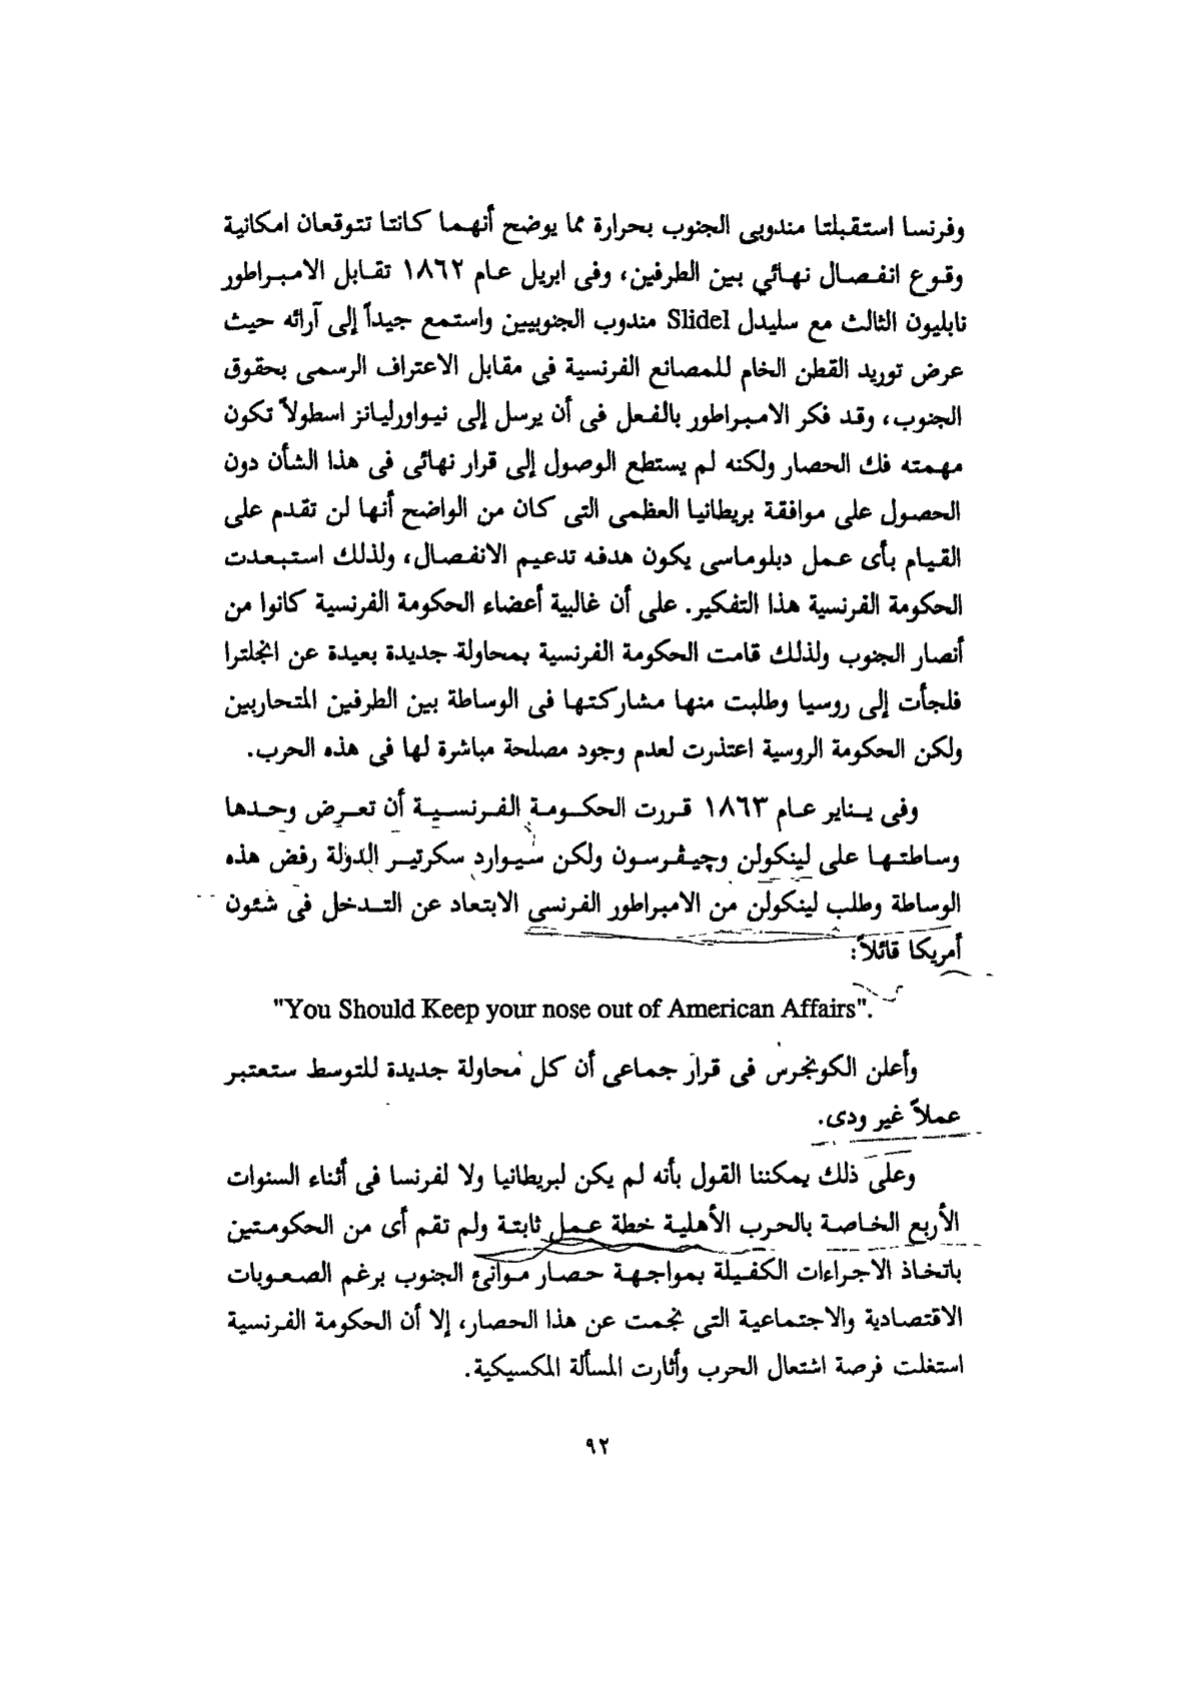 وفرنسا استقبلتا مندوبى الجنوب بحرارة مما يوضح أنهما كانتا تتوقعان امكانية
وقوع انفصال نهائي بين الطرفين، وفى ابريل عام ١٨٦٢ تقابل الامبراطور
نابليون الثالث مع سليدل Slidel مندوب الجنوبيين واستمع جيداً إلى آرائه حيث
عرض توريد القطن الخام للمصانع الفرنسية فى مقابل الاعتراف الرسمى بحقوق
الجنوب، وقد فكر الامبراطور بالفعل فى أن يرسل إلى نيواورليانز اسطولاً تكون
مهمته فك الحصار ولكنه لم يستطع الوصول إلى قرار نهائى فى هذا الشأن دون
الحصول على موافقة بريطانيا العظمى التى كان من الواضح أنها لن تقدم على
القيام بأى عمل دبلوماسى يكون هدفه تدعيم الانفصال، ولذلك استبعدت
الحكومة الفرنسية هذا التفكير. على أن غالبية أعضاء الحكومة الفرنسية كانوا من
أنصار الجنوب ولذلك قامت الحكومة الفرنسية بمحاولة جديدة بعيدة عن انجلترا
فلجأت إلى روسيا وطلبت منها مشاركتها فى الوساطة بين الطرفين المتحاربين
ولكن الحكومة الروسية اعتذرت لعدم وجود مصلحة مباشرة لها فى هذه الحرب.
وفى يناير عام ١٨٦٣ قررت الحكومة الفرنسية أن تعرض وحدها
وساطتها على لينكولن وچيفرسون ولكن سيوارد سكرتير الدولة رفض هذه
الوساطة وطلب لينكولن من الامبراطور الفرنسى الابتعاد عن التدخل فى شئون
أمريكا قائلاً:
"You Should Keep your nose out of American Affairs".
وأعلن الكونجرس فى قرار جماعى أن كل محاولة جديدة للتوسط ستعتبر
عملاً غير ودى.
وعلى ذلك يمكننا القول بأنه لم يكن لبريطانيا ولا لفرنسا فى أثناء السنوات
الأربع الخاصة بالحرب الأهلية خطة عمل ثابتة ولم تقم أى من الحكومتين
باتخاذ الاجراءات الكفيلة بمواجهة حصار موانئ الجنوب برغم الصعوبات
الاقتصادية والاجتماعية التى نجمت عن هذا الحصار، إلا أن الحكومة الفرنسية
استغلت فرصة اشتعال الحرب وأثارت المسألة المكسيكية.
٩٢